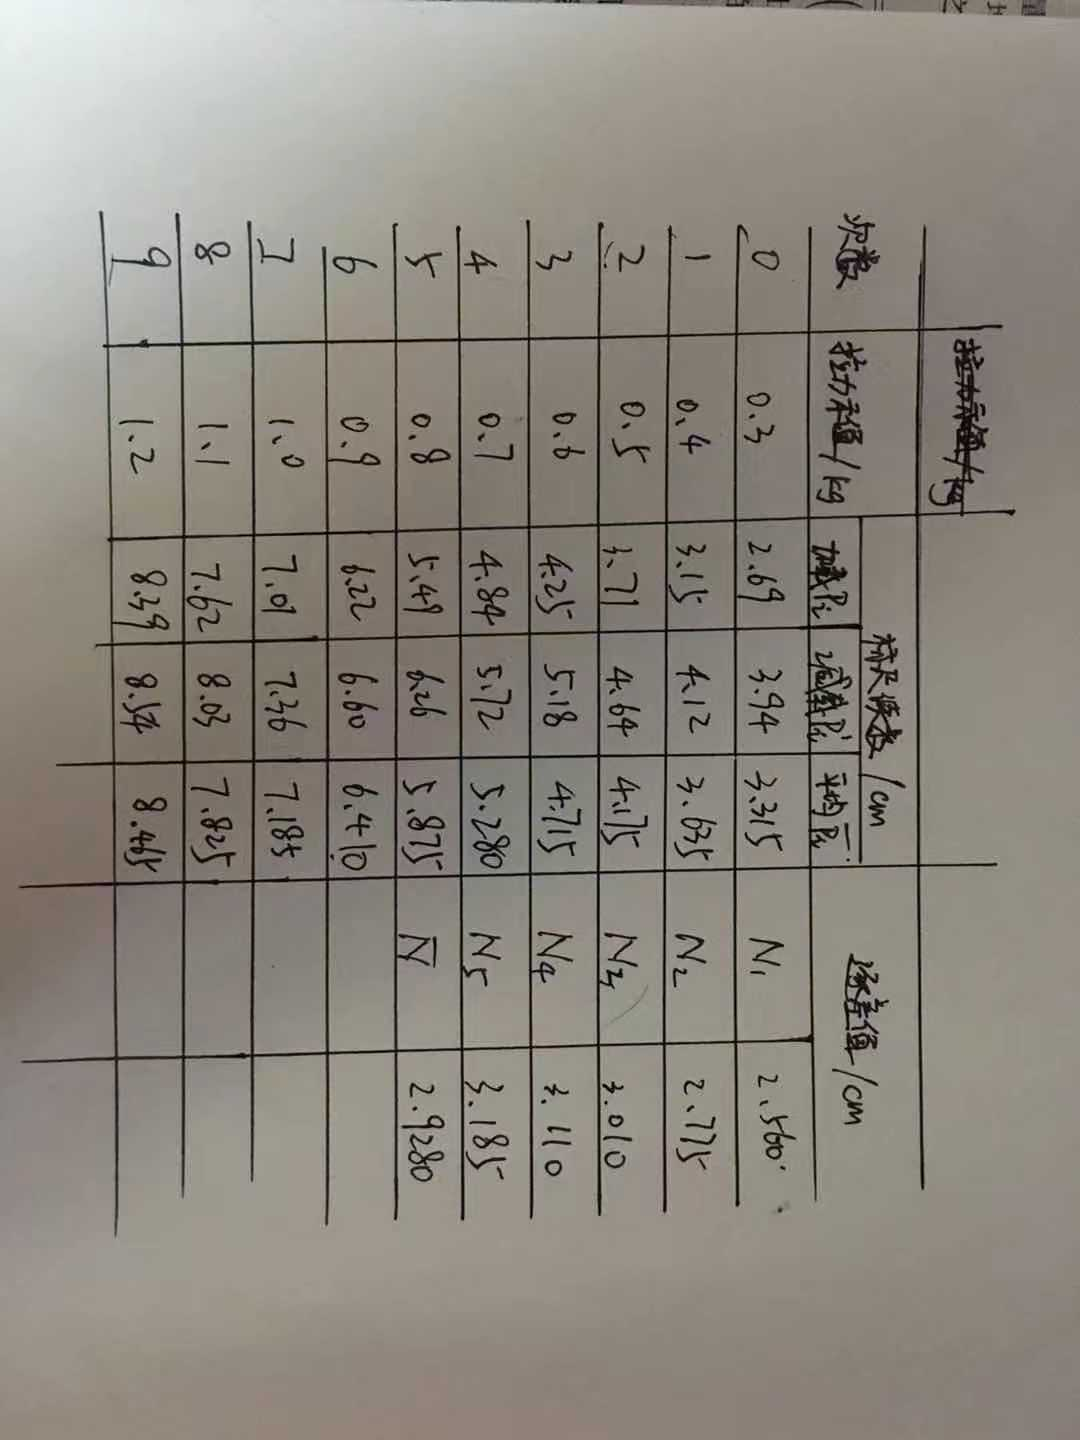 拉力示值/kg
次数 拉力示值/kg 标尺读数/cm 逐差值/cm
加载Pi 减载Pi' 平均P̄i
0 0.3 2.69 3.94 3.315 N1 2.560
1 0.4 3.15 4.12 3.635 N2 2.775
2 0.5 3.71 4.64 4.175 N3 3.010
3 0.6 4.25 5.18 4.715 N4 3.110
4 0.7 4.84 5.72 5.280 N5 3.185
5 0.8 5.49 6.26 5.875 N̄ 2.9280
6 0.9 6.22 6.60 6.410
7 1.0 7.01 7.36 7.185
8 1.1 7.62 8.03 7.825
9 1.2 8.39 8.54 8.465